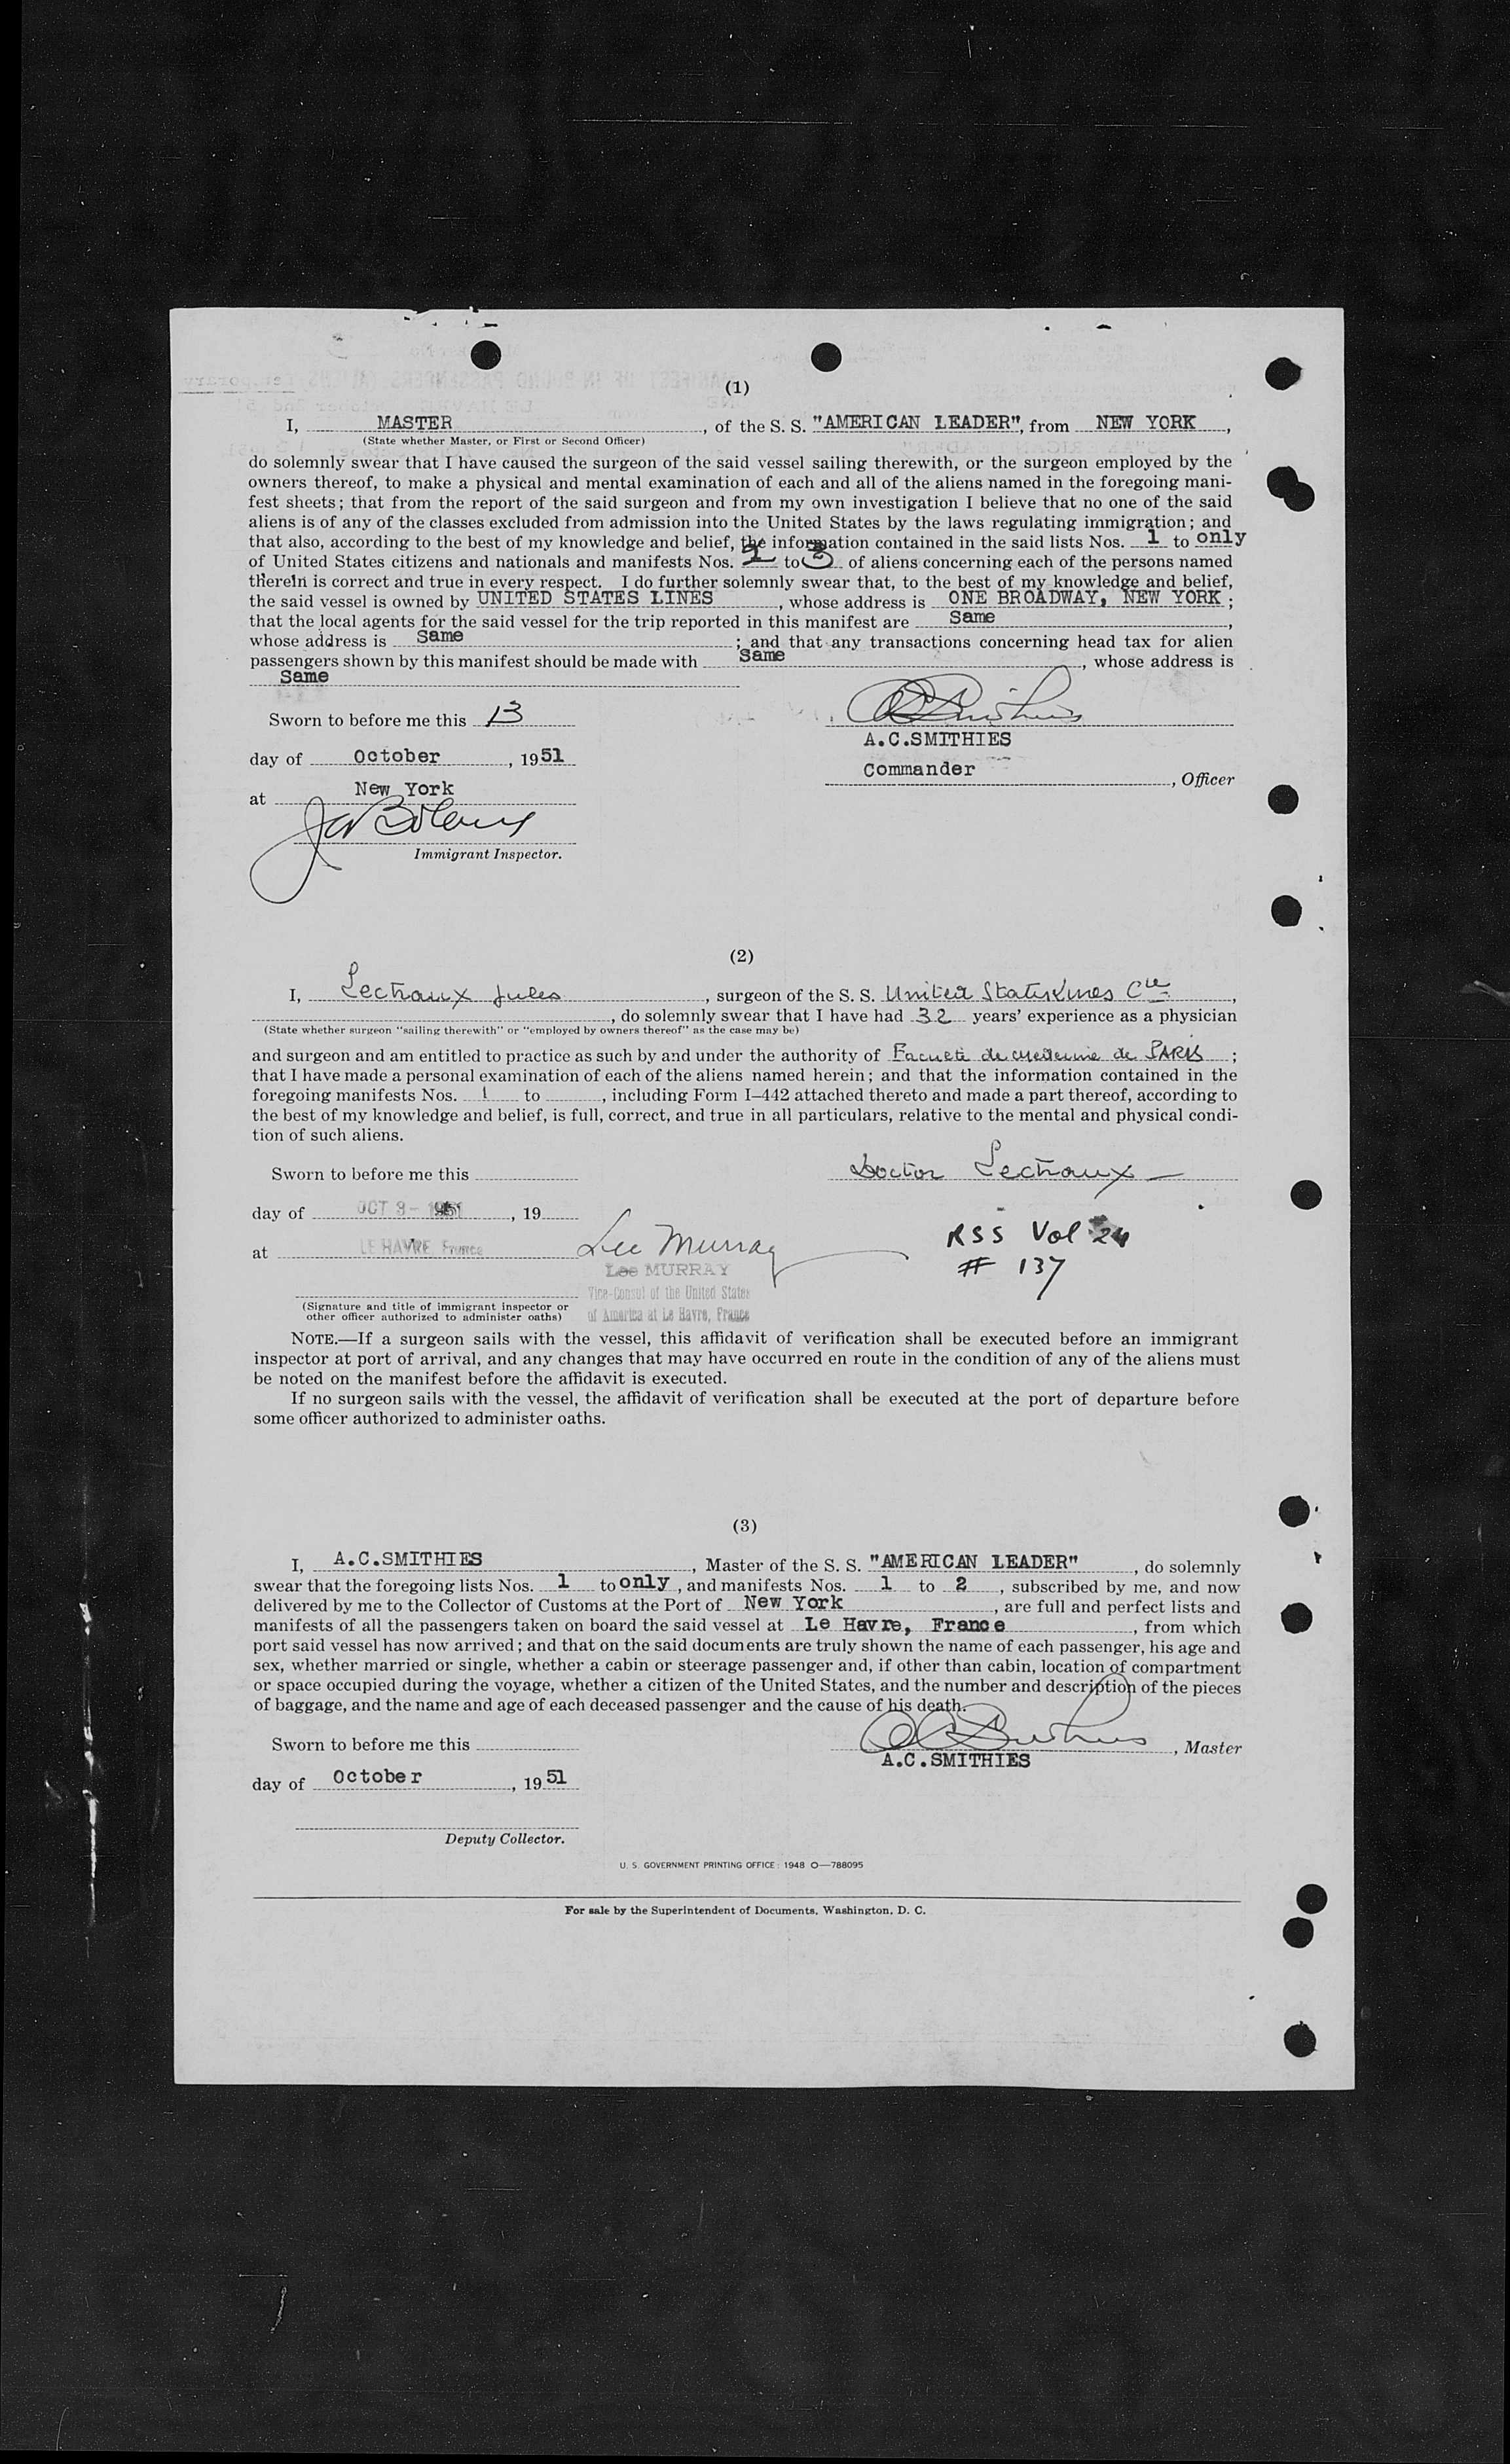 (1)
I, MASTER, of the S. S. "AMERICAN LEADER", from NEW YORK,
(State whether Master, or First or Second Officer)
do solemnly swear that I have caused the surgeon of the said vessel sailing therewith, or the surgeon employed by the
owners thereof, to make a physical and mental examination of each and all of the aliens named in the foregoing mani-
fest sheets; that from the report of the said surgeon and from my own investigation I believe that no one of the said
aliens is of any of the classes excluded from admission into the United States by the laws regulating immigration; and
that also, according to the best of my knowledge and belief, the information contained in the said lists Nos. 1 to only
of United States citizens and nationals and manifests Nos. 2 to 3 of aliens concerning each of the persons named
therein is correct and true in every respect. I do further solemnly swear that, to the best of my knowledge and belief,
the said vessel is owned by UNITED STATES LINES, whose address is ONE BROADWAY, NEW YORK;
that the local agents for the said vessel for the trip reported in this manifest are Same,
whose address is Same; and that any transactions concerning head tax for alien
passengers shown by this manifest should be made with Same, whose address is
Same
Sworn to before me this 13
A.C.SMITHIES
day of October, 1951
Commander, Officer
at New York
Immigrant Inspector.
(2)
I, Lectraux Jules, surgeon of the S. S. United States Lines Cie,
, do solemnly swear that I have had 32 years' experience as a physician
(State whether surgeon "sailing therewith" or "employed by owners thereof" as the case may be)
and surgeon and am entitled to practice as such by and under the authority of Faculté de medecine de PARIS;
that I have made a personal examination of each of the aliens named herein; and that the information contained in the
foregoing manifests Nos. 1 to , including Form I-442 attached thereto and made a part thereof, according to
the best of my knowledge and belief, is full, correct, and true in all particulars, relative to the mental and physical condi-
tion of such aliens.
Sworn to before me this
Doctor Lectraux
day of OCT 3- 1951, 19
at LE HAVRE France
Lee Murray
RSS Vol 24
# 137
Lee MURRAY
Vice-Consul of the United States
of America at Le Havre, France
(Signature and title of immigrant inspector or
other officer authorized to administer oaths)
NOTE.—If a surgeon sails with the vessel, this affidavit of verification shall be executed before an immigrant
inspector at port of arrival, and any changes that may have occurred en route in the condition of any of the aliens must
be noted on the manifest before the affidavit is executed.
If no surgeon sails with the vessel, the affidavit of verification shall be executed at the port of departure before
some officer authorized to administer oaths.
(3)
I, A.C.SMITHIES, Master of the S. S. "AMERICAN LEADER", do solemnly
swear that the foregoing lists Nos. 1 to only, and manifests Nos. 1 to 2, subscribed by me, and now
delivered by me to the Collector of Customs at the Port of New York, are full and perfect lists and
manifests of all the passengers taken on board the said vessel at Le Havre, France, from which
port said vessel has now arrived; and that on the said documents are truly shown the name of each passenger, his age and
sex, whether married or single, whether a cabin or steerage passenger and, if other than cabin, location of compartment
or space occupied during the voyage, whether a citizen of the United States, and the number and description of the pieces
of baggage, and the name and age of each deceased passenger and the cause of his death.
Sworn to before me this
, Master
A.C.SMITHIES
day of October, 1951
Deputy Collector.
U. S. GOVERNMENT PRINTING OFFICE: 1948 O—788095
For sale by the Superintendent of Documents, Washington, D. C.